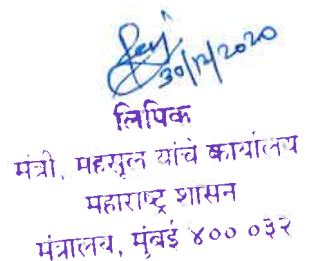 30/12/2020
लिपिक
मंत्री, महसूल यांचे कार्यालय
महाराष्ट्र शासन
मंत्रालय, मुंबई ४०० ०३२